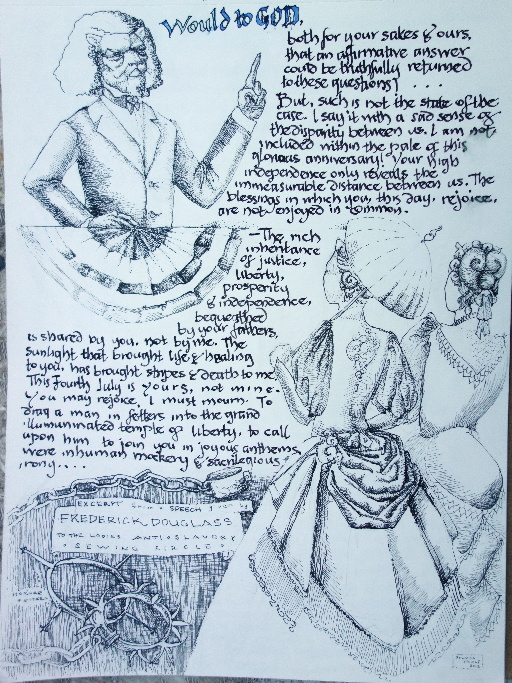 Would to GOD,
both for your sakes & ours,
that an affirmative answer
could be truthfully returned
to these questions! . . .
But, such is not the state of the
case. I say it with a sad sense of
the disparity between us. I am not
included within the pale of this
glorious anniversary! Your high
independence only reveals the
immeasurable distance between us. The
blessings in which you, this day, rejoice,
are not enjoyed in common.
—The rich
inheritance
of justice,
liberty,
prosperity
& independence,
bequeathed
by your fathers,
is shared by you, not by me. The
sunlight that brought life & healing
to you, has brought stripes & death to me.
This Fourth July is yours, not mine.
You may rejoice, I must mourn. To
drag a man in fetters into the grand
illuminated temple of liberty, to call
upon him to join you in joyous anthems,
were inhuman mockery & sacrilegious
irony....
EXCERPT from a SPEECH by
FREDERICK DOUGLASS
TO THE LADIES ANTI-SLAVERY
& SEWING CIRCLE